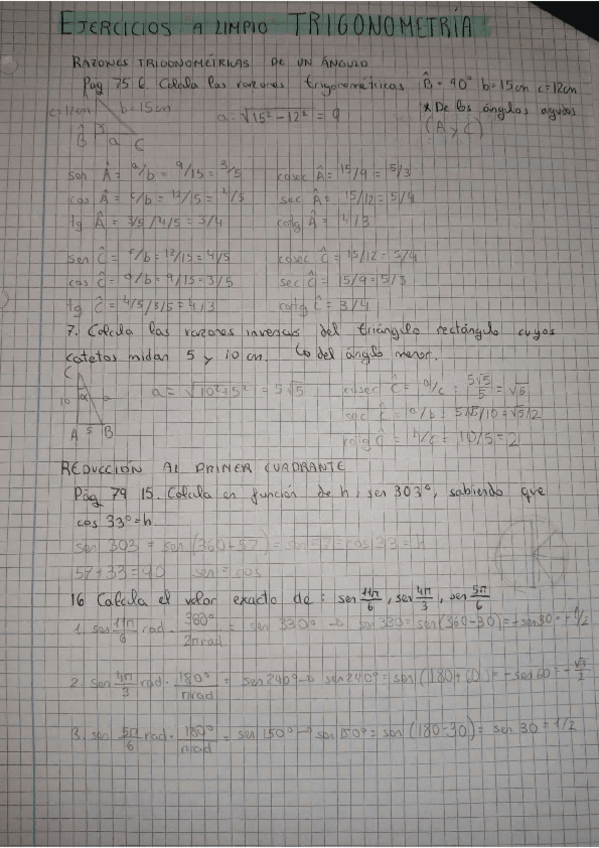 EJERCICIOS A LIMPIO TRIGONOMETRÍA
RAZONES TRIGONOMÉTRICAS DE UN ÁNGULO
Pág 75 6. Calcula las razones trigonométricas B̂ = 90° b = 15cm c = 12cm
c=12cm b=15cm a = √15²-12² = 9 * De los ángulos agudos
B̂ a C (A y C)
sen Â = a/b = 9/15 = 3/5 cosec Â = 15/9 = 5/3
cos Â = c/b = 12/15 = 4/5 sec Â = 15/12 = 5/4
tg Â = 3/5 / 4/5 = 3/4 cotg Â = 4/3
sen Ĉ = c/b = 12/15 = 4/5 cosec Ĉ = 15/12 = 5/4
cos Ĉ = a/b = 9/15 = 3/5 sec Ĉ = 15/9 = 5/3
tg Ĉ = 4/5 / 3/5 = 4/3 cotg Ĉ = 3/4
7. Calcula las razones inversas del triángulo rectángulo cuyos
catetos midan 5 y 10 cm. Lo del ángulo menor.
C
10 a a = √10²+5² = 5√5 cosec Ĉ = a/c = 5√5/5 = √5
sec Ĉ = a/b = 5√5/10 = √5/2
A 5 B cotg Ĉ = b/c = 10/5 = 2
REDUCCIÓN AL PRIMER CUADRANTE
Pág 79 15. Calcula en función de h, sen 303°, sabiendo que
cos 33° = h
sen 303 = sen (360-57) = sen 57 = cos 33 = h
57+33=90 sen = cos
16 Calcula el valor exacto de: sen 11π/6, sen 4π/3, sen 5π/6
1. sen 11π/6 rad · 360°/2π rad = sen 330° → sen 330 = sen (360-30) = -sen 30 = -1/2
2. sen 4π/3 rad · 180°/π rad = sen 240° → sen 240° = sen (180+60) = -sen 60 = -√3/2
3. sen 5π/6 rad · 180°/π rad = sen 150° → sen 150° = sen (180-30) = sen 30 = 1/2